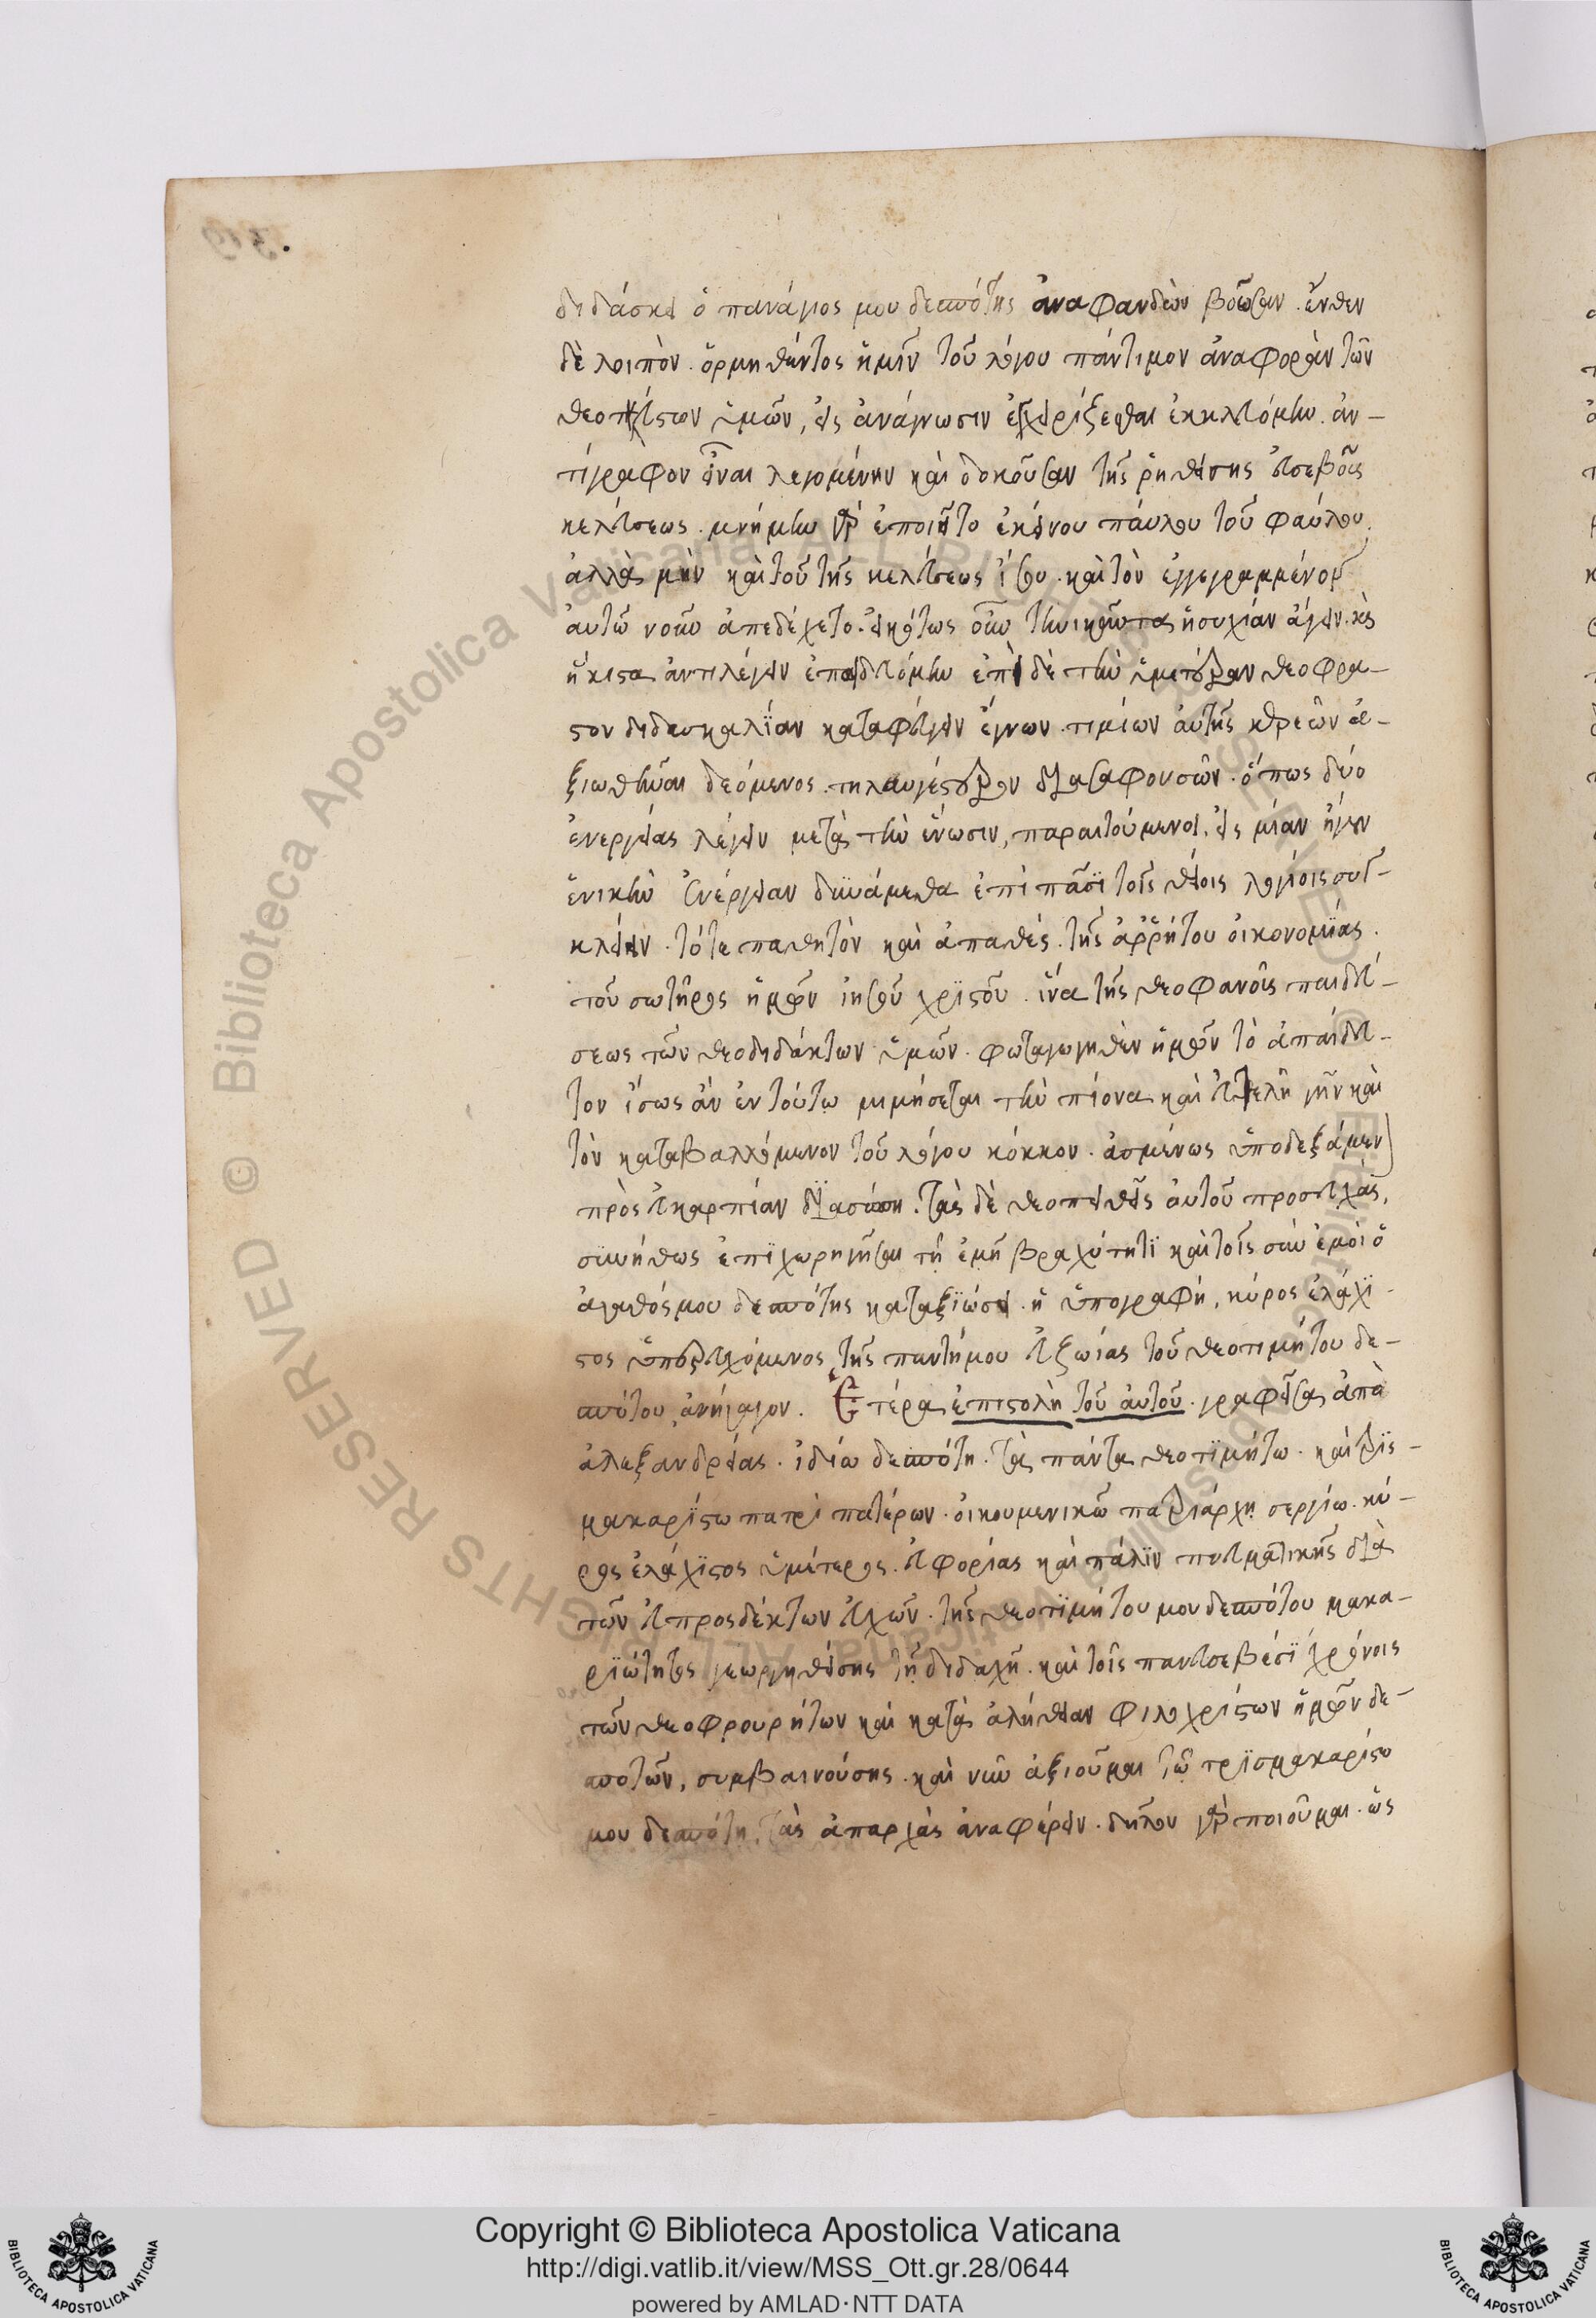 διδάσκει ὁ πανάγιός μου δεσπότης ἀναφανδὸν βοῶσαν. ἔνθεν
δὲ λοιπὸν ὁρμηθέντος ἡμῖν τοῦ λόγου πάντιμον ἀναφορὰν τῶν
θεοπνεύστων ὑμῶν, εἰς ἀνάγνωσιν ἐγχειρίζεσθαι ἐκκελευόμην. ἀν-
τίγραφον εἶναι λεγομένην καὶ δοκοῦσαν τῆς ῥηθείσης εὐσεβοῦς
κελεύσεως. μνήμην γὰρ ἐποιεῖτο ἐκείνου παύλου τοῦ φαύλου.
ἀλλὰ μὴν καὶ τοῦ τῆς κελεύσεως ἴσου. καὶ τὸν ἐγγεγραμμένον
αὐτῷ νοῦν ἀπεδέχετο. εἰκότως οὖν τηνικαῦτα ἡσυχίαν ἄγειν. καὶ
ἥκιστα ἀντιλέγειν ἐπαιδευόμην ἐπὶ δὲ τὴν ὑμετέραν θεόφρα-
στον διδασκαλίαν καταφεύγειν ἔγνων. τιμίων αὐτῆς κεραιῶν ἀ-
ξιωθῆναι δεόμενος. τηλαυγέστερον διασαφουσῶν. ὅπως δύο
ἐνεργείας λέγειν μετὰ τὴν ἕνωσιν, παραιτούμενοι. εἰς μίαν ἤγουν
ἑνικὴν ἐνέργειαν δυνάμεθα ἐπὶ πᾶσι τοῖς θείοις λογίοις συγ-
κλείειν. τό τε παθητὸν καὶ ἀπαθές. τῆς ἀρρήτου οἰκονομίας.
τοῦ σωτῆρος ἡμῶν ἰησοῦ χριστοῦ. ἵνα τῆς θεοφανοῦς παιδεύ-
σεως τῶν θεοδιδάκτων ὑμῶν. φωταγωγηθὲν ἡμῶν τὸ ἀπαίδευ-
τον ἴσως ἂν ἐν τούτῳ μιμήσεται τὴν πίονα καὶ εὐτελῆ γῆν καὶ
τὸν καταβαλλόμενον τοῦ λόγου κόκκον. ἀσμένως ὑποδεξάμεν
πρὸς εὐκαρπίαν διασώσῃ. τὰς δὲ θεοπειθεῖς αὐτοῦ προσευχάς,
συνήθως ἐπιχωρηγῆσαι τῇ ἐμῇ βραχύτητι καὶ τοῖς σὺν ἐμοὶ ὁ
ἀγαθός μου δεσπότης καταξιώσει. ἡ ὑπογραφή, κύρος ἐλάχι-
στος ὑπερευχόμενος τῆς παντήμου εὐζωίας τοῦ θεοτιμήτου δε-
σπότου ἀνήγαγον. Ἑτέρα ἐπιστολὴ τοῦ αὐτοῦ. γραφεῖσα ἀπὸ
ἀλεξανδρείας. ἰδίῳ δεσπότῃ. τὰ πάντα θεοτιμήτῳ. καὶ τρισ-
μακαρίστῳ πατρὶ πατέρων. οἰκουμενικῷ πατριάρχῃ σεργίῳ. κύ-
ρος ἐλάχιστος ὑμέτερος. εὐφορίας καὶ πάλιν πνευματικῆς διὰ
τῶν εὐπροσδέκτων εὐχῶν. τῆς θεοτιμήτου μου δεσπότου μακα-
ριώτητος γεωργηθείσης τῇ διδαχῇ. καὶ τοῖς πανευσεβέσι χρόνοις
τῶν θεοφρουρήτων καὶ κατὰ ἀλήθειαν φιλοχρίστων ἡμῶν δε-
σποτῶν, συμβαινούσης. καὶ νῦν ἀξιοῦμαι τῷ τρισμακαρίστῳ
μου δεσπότῃ, τὰς ἀπαρχὰς ἀναφέρειν. δῆλον γὰρ ποιοῦμαι. ὡς
Copyright © Biblioteca Apostolica Vaticana
http://digi.vatlib.it/view/MSS_Ott.gr.28/0644
powered by AMLAD·NTT DATA